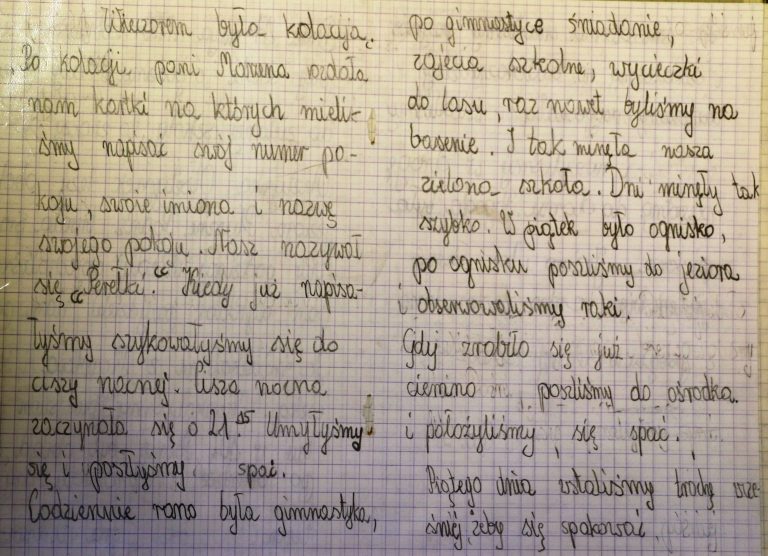 Wieczorem była kolacja.
Po kolacji pani Marzena rozdała
nam kartki na których mieli-
śmy napisać swój numer po-
koju, swoie imiona i nazwę
swojego pokoju. Nasz nazywał
się „Perełki". Kiedy już napisa-
łyśmy szykowałyśmy się do
ciszy nocnej. Cisza nocna
zaczynała się o 21.15 Umyłyśmy
się i poszłyśmy spać.
Codziennie rano była gimnastyka,
po gimnastyce śniadanie,
zajęcia szkolne, wycieczki
do lasu, raz nawet byliśmy na
basenie. I tak minęła nasza
zielona szkoła. Dni minęły tak
szybko. W piątek było ognisko,
po ognisku poszliśmy do jeziora
i obserwowaliśmy raki.
Gdy zrobiło się już
ciemno, poszliśmy do ośrodka
i położyliśmy się spać.
dnia wstaliśmy trochę wcze-
śniej, żeby się spakować.